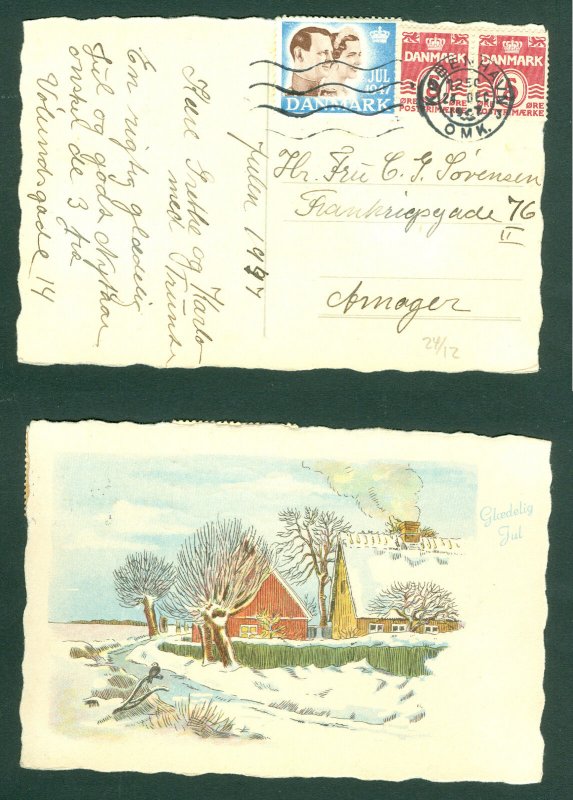 JUL
1947
DANMARK
DANMARK
5
ØRE
POSTFRIMÆRKE
DANMARK
5
ØRE
POSTFRIMÆRKE
KØBENHAVN
OMK.
Julen 1947
Hr. Fru C. G. Sørensen
Frankrigsgade 76
II
Amager
24/12
Kære Grethe og Karlo
med
En rigtig glædelig
Jul og godt Nytaar
ønskes de 3 fra
Vølundsgade 14
Glædelig
Jul